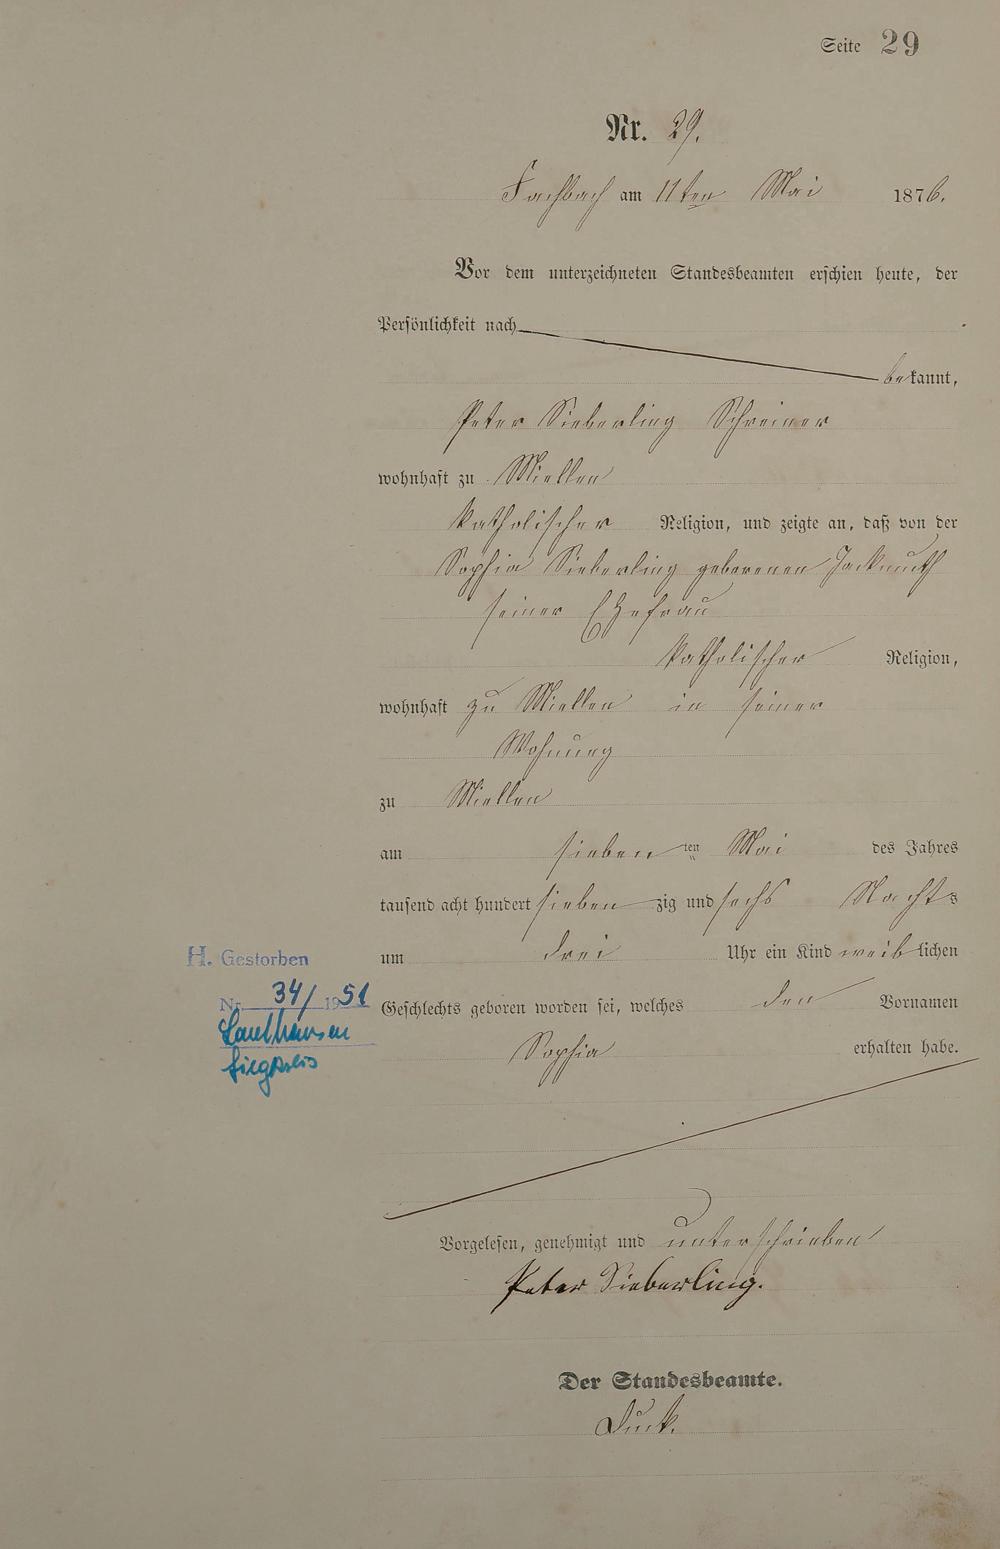 Seite 29
Nr. 29.
Fachbach am 11ten Mai 1876.
Vor dem unterzeichneten Standesbeamten erschien heute, der
Persönlichkeit nach
bekannt,
Peter Sieberling Schreiner
wohnhaft zu Miellen
katholischer Religion, und zeigte an, daß von der
Sophia Sieberling geborenen Jackmuth
seiner Ehefrau
katholischer Religion,
wohnhaft zu Miellen in seiner
Wohnung
zu Miellen
am sieben ten Mai des Jahres
tausend acht hundert sieben zig und sechs Nachts
um drei Uhr ein Kind weiblichen
H. Gestorben
Nr. 34/1951
Geschlechts geboren worden sei, welches den Vornamen
Lauthausen
Siegkreis
Sophia erhalten habe.
Vorgelesen, genehmigt und unterschrieben
Peter Sieberling.
Der Standesbeamte.